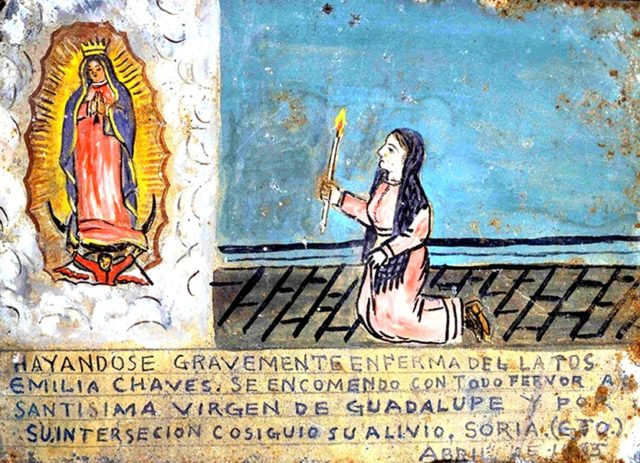 HAYANDOSE GRAVEMENTE ENFERMA DEL LA TOS
EMILIA CHAVES. SE ENCOMENDO CON TODO FERVOR A
SANTISIMA VIRGEN DE GUADALUPE Y POR
SU INTERSECION COSIGUIO SU ALIVIO, SORIA. (GTO.)
ABRIL